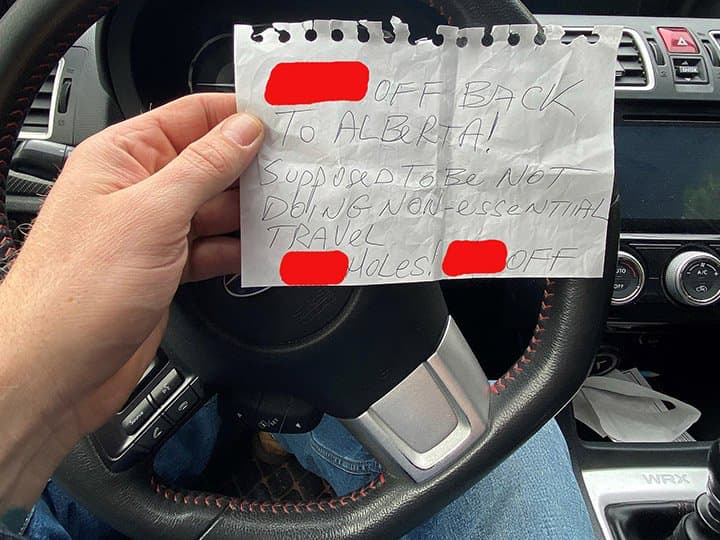 OFF BACK
TO ALBERTA!
SUPPOSED TO BE NOT
DOING NON-ESSENTIAL
TRAVEL
HOLES! OFF
A/C
OFF
WRX